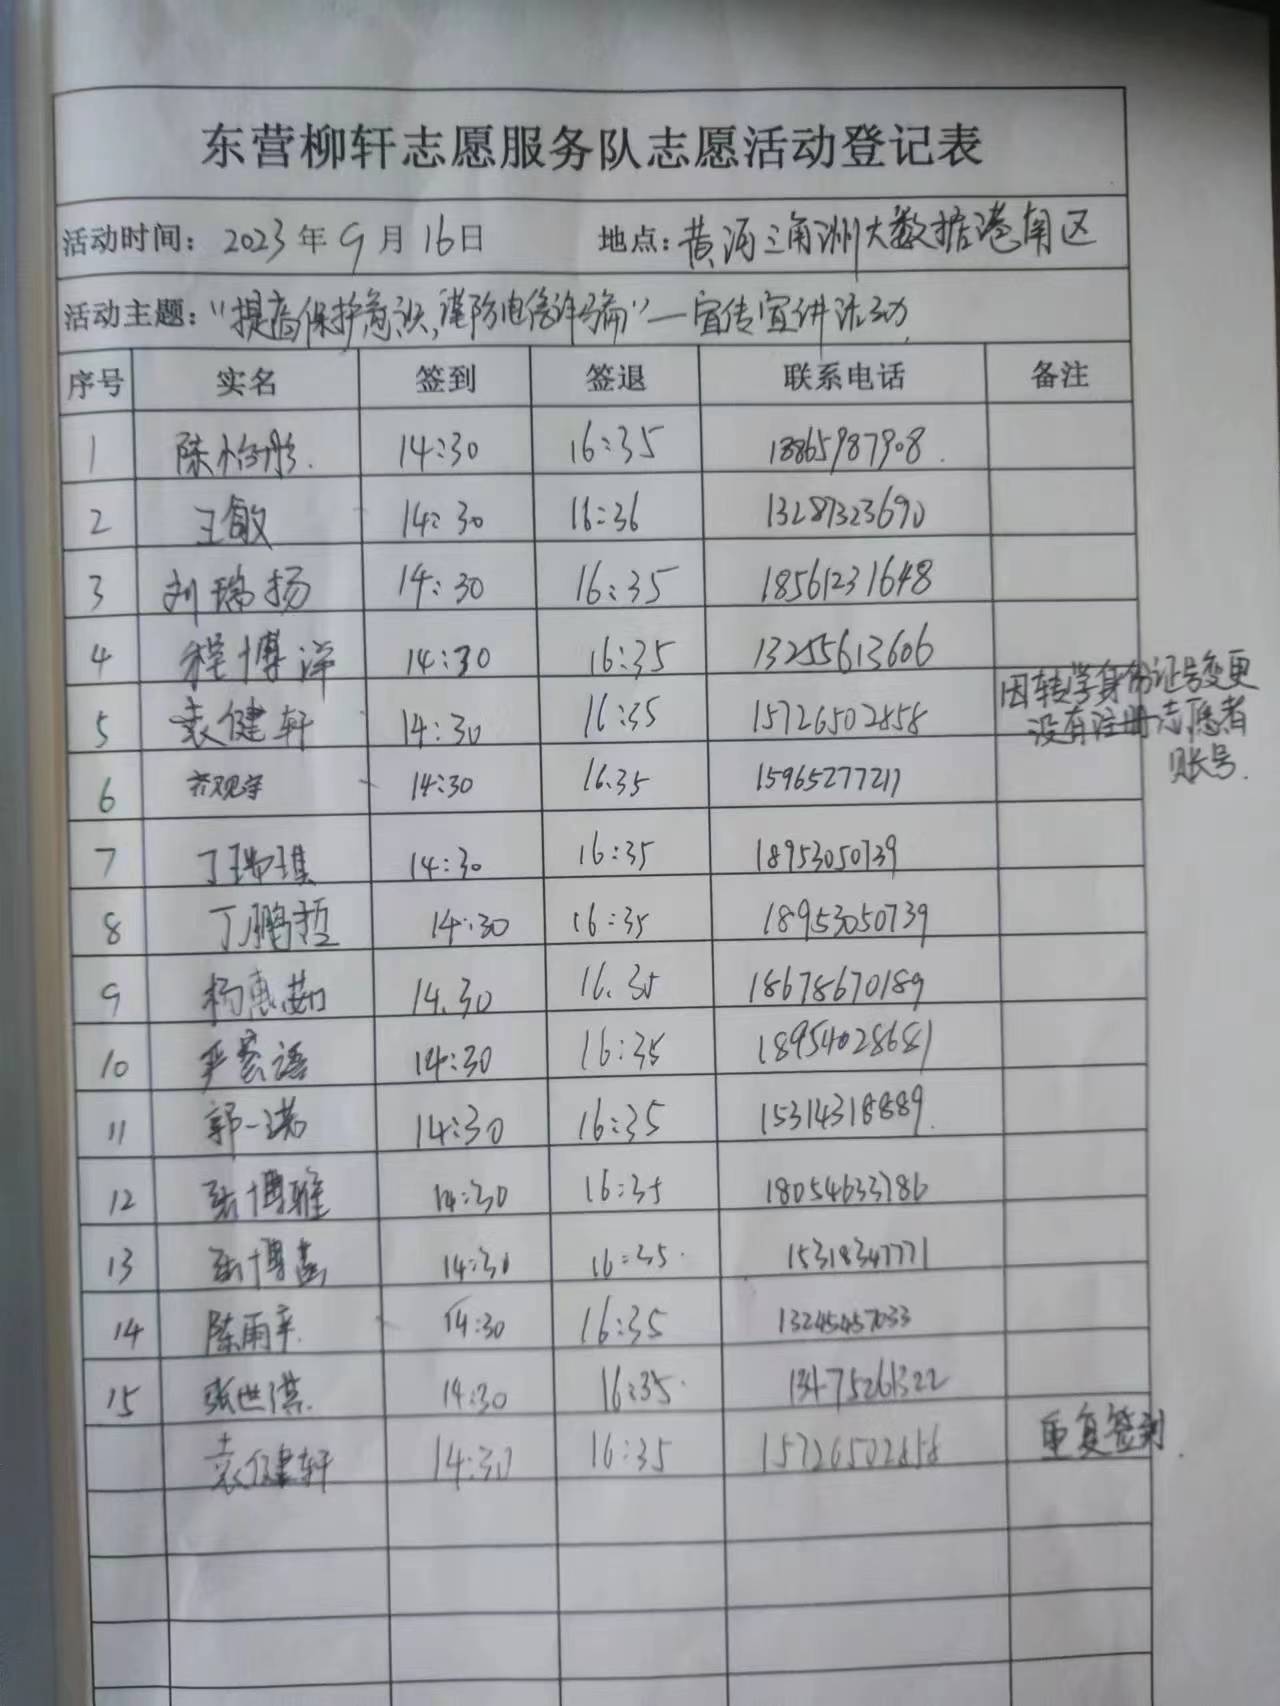 东营柳轩志愿服务队志愿活动登记表
活动时间：2023年9月16日 地点：黄河三角洲大数据港南区
活动主题：“提高保护意识，谨防电信诈骗”—宣传宣讲活动
序号 实名 签到 签退 联系电话 备注
1 陈怡彤. 14:30 16:35 18865987908.
2 王敏 14:30 16:36 13287323690
3 刘瑞扬 14:30 16:35 18561231648
4 程博洋 14:30 16:35 13255613606
5 袁健轩 14:30 16:35 15726502858 因转学身份证号变更
没有注册志愿者
账号.
6 14:30 16.35 15965277211
7 丁瑞琪 14:30 16:35 18953050739
8 丁鹏哲 14:30 16:35 18953050739
9 杨惠茹 14.30 16.35 18678670189
10 14:30 16:35 18954028681
11 郭一诺 14:30 16:35 15314318889.
12 张博雅 14:30 16:35 18054633786
13 张博 14:30 16:35. 15318347771
14 陈雨 14:30 16:35 13245457033
15 张世祺. 14:30 16:35. 13475261322
袁健轩 14:30 16:35 15726502858 重复签到.